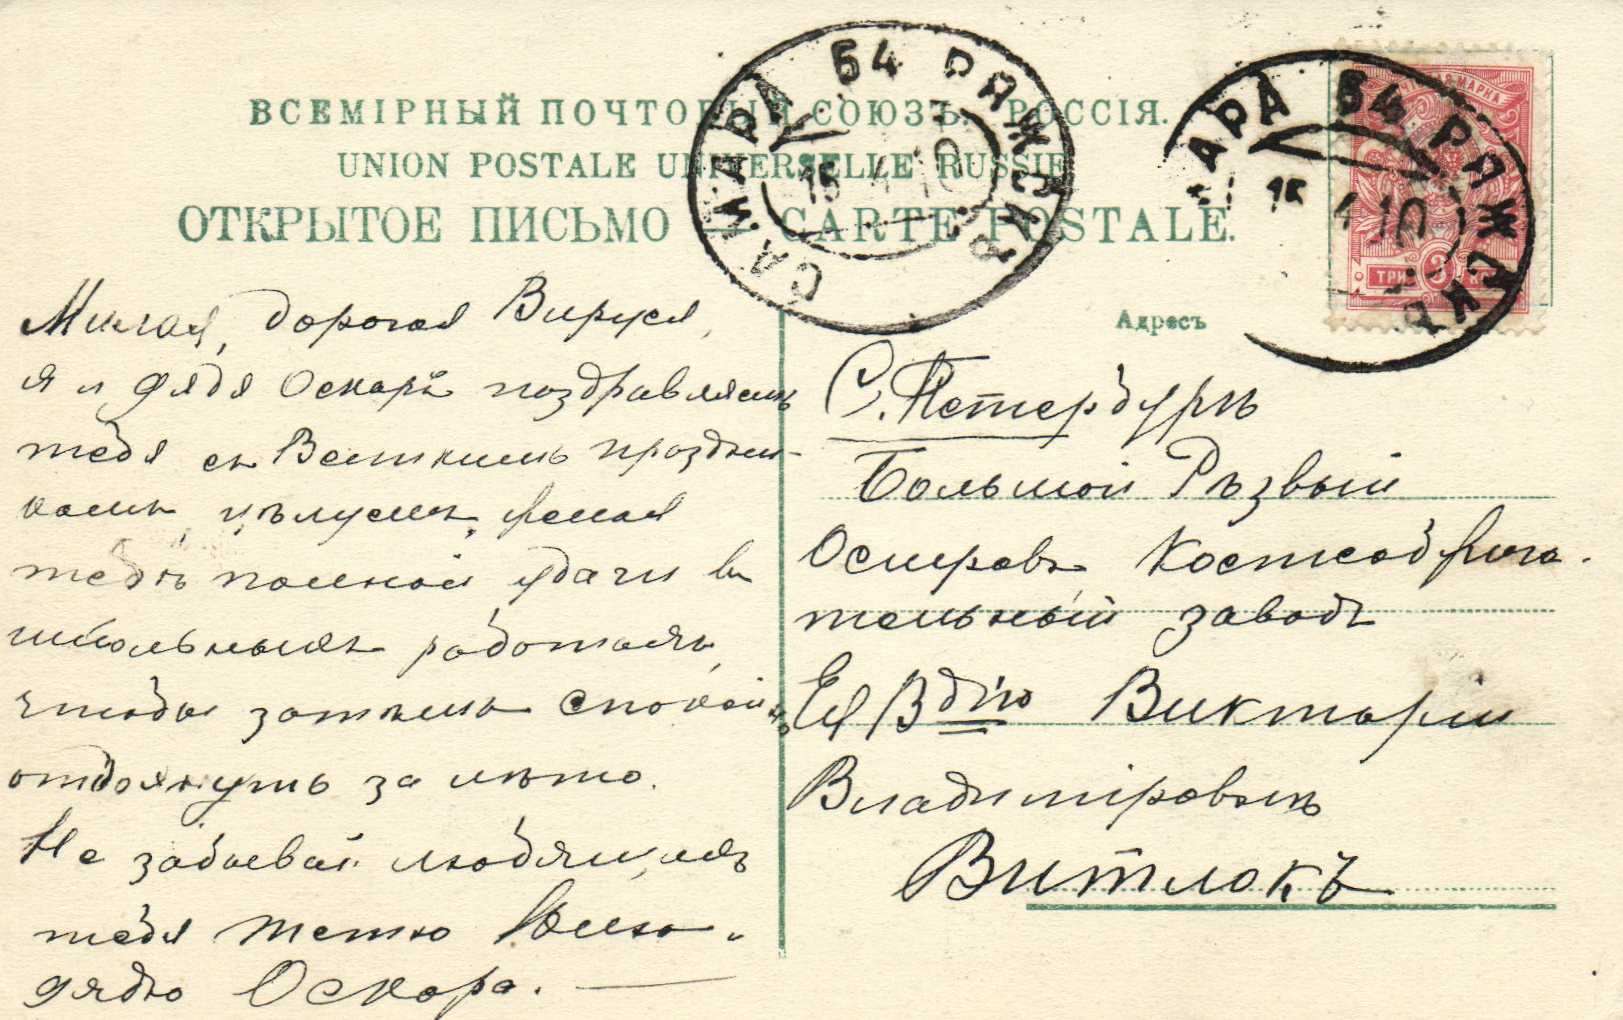 ВСЕМІРНЫЙ ПОЧТОВЫЙ СОЮЗЪ. РОССІЯ.
UNION POSTALE UNIVERSELLE RUSSIE
ОТКРЫТОЕ ПИСЬМО — CARTE POSTALE.
САМАРА 54 РЯЖСКЪ
15 4 10
МАРА 54 РЯЖСКЪ
15 4 10
МАРКА
ТРИ 3 К
Милая, дорогая Вируся,
я и дядя Оскаръ поздравляемъ
тебя съ Великимъ праздни-
комъ, цѣлуемъ, желая
тебѣ полной удачи въ
школьныхъ работахъ,
чтобы затѣмъ спокойнѣ
отдохнуть за лѣто.
Не забывай любящихъ
тебя тетю
дядю Оскара.
Адресъ
С. Петербургъ
Большой Рѣзвый
Островъ Костеобжига-
тельный заводъ
Ея Вдію Викторіи
Владиміровнѣ
Витлокъ